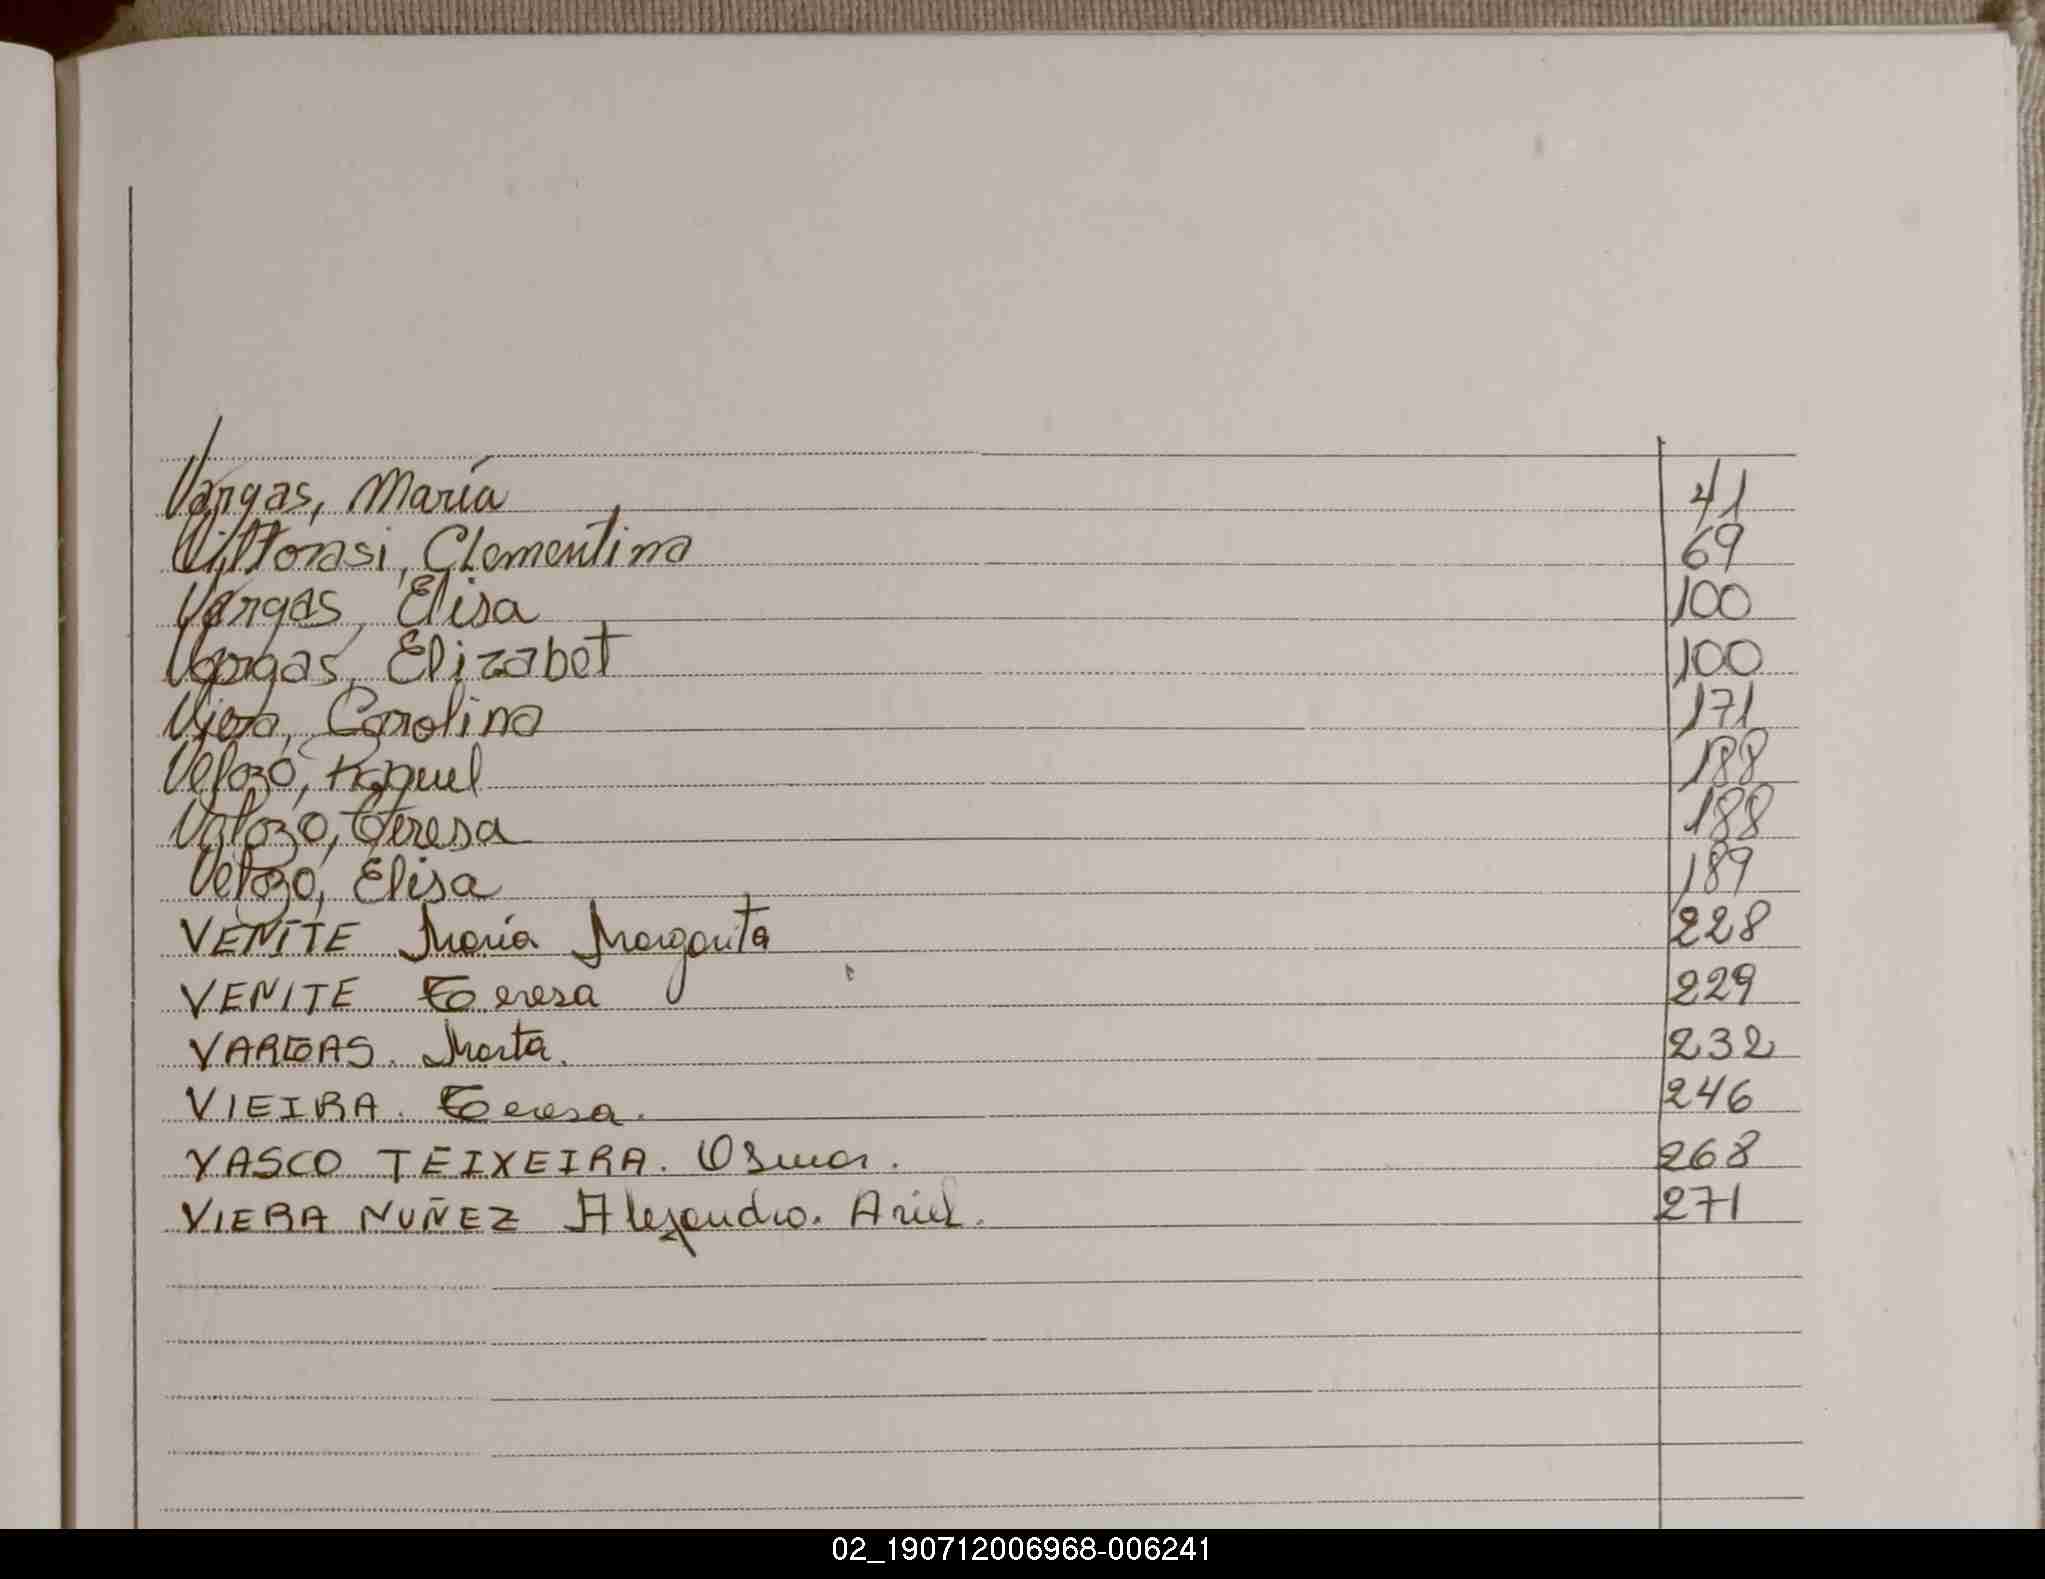 Vargas, María 41
Vittorasi, Clementina 69
Vargas, Elisa 100
Vargas, Elizabet 100
Viera, Carolina 171
Velozo, Raquel 188
Velozo, Teresa 188
Velozo, Elisa 189
VENITE María Margarita 228
VENITE Teresa 229
VARGAS. Marta. 232
VIEIRA. Teresa. 246
VASCO TEIXEIRA. Osmar. 268
VIERA NUÑEZ Alejandro. Ariel. 271
02_190712006968-006241